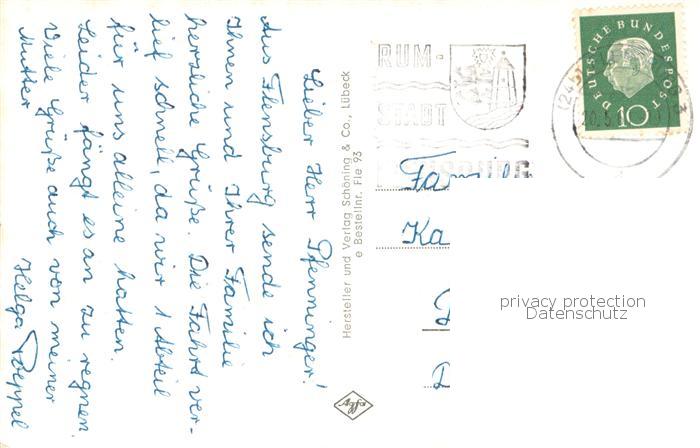 Lieber Herr Pfenninger!
Aus Flensburg sende ich
Ihnen und Ihrer Familie
herzliche Grüße. Die Fahrt ver-
lief schnell, da wir 1 Abteil
für uns alleine hatten.
Leider fängt es an zu regnen.
Viele Grüße auch von meiner
Mutter
Helga Poeppel
Hersteller und Verlag Schöning & Co., Lübeck
e Bestellnr. Fle 93
Agfa
RUM-
STADT
FLENSBURG
DEUTSCHE BUNDESPOST
10
(24
20.5
Famil
Ka
privacy protection
Datenschutz